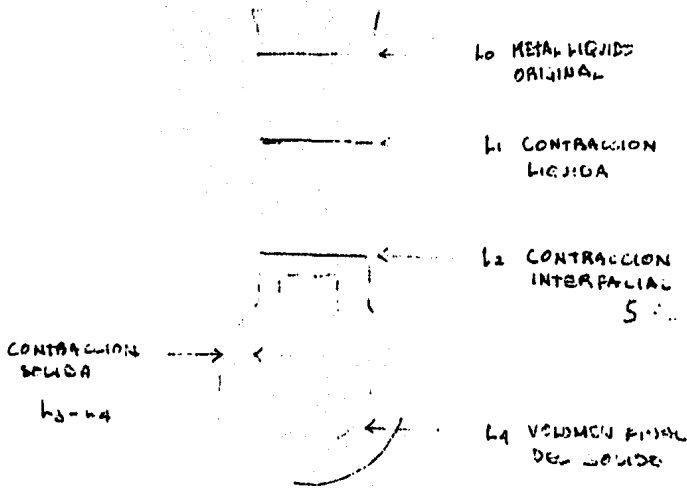 L0 METAL LIQUIDO
ORIGINAL
L1 CONTRACCION
LIQUIDA
L2 CONTRACCION
INTERFACIAL
CONTRACCION
SOLIDA
L3-L4
L4 VOLUMEN FINAL
DEL SOLIDO